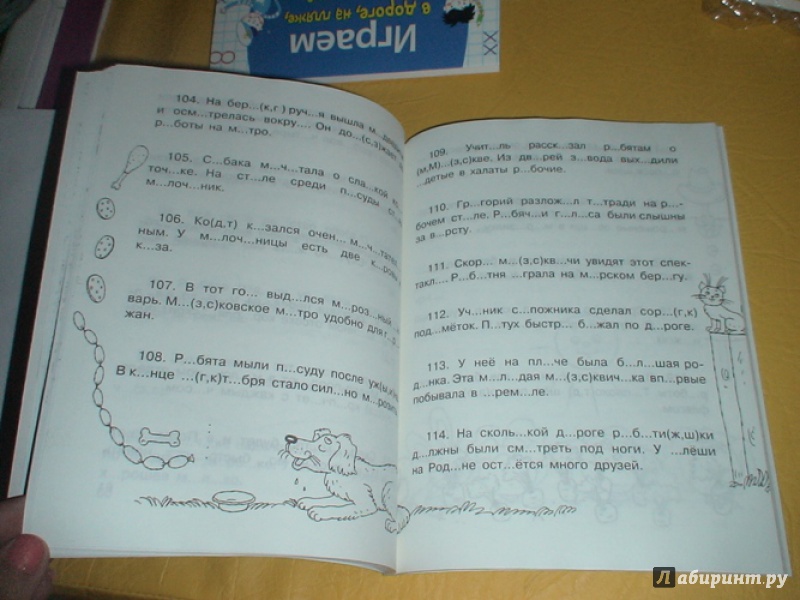 Играем
в дороге, на пляже,
104. На бер...(к,г) руч...я вышла
и осм...трелась вокру.... Он до...(с,з)
р...боты на м...тро.
105. С...бака м...ч...тала о сла...кой
точ...ке. На ст...ле среди п...суды
м...лоч...ник.
106. Ко(д,т) к...зался очен... м...ч...
ным. У м...лоч...ницы есть две к...
к...за.
107. В тот го... выд...лся м...роз...ный
варь. М...(з,с)ковское м...тро удобно для
жан.
108. Р...бята мыли п...суду после
В к...нце ...(г,к)т...бря стало сил...но
109. Учит...ль расск...зал р...бятам о
(м,М)...(з,с)кве. Из дв...рей з...вода вых...дили
...детые в халаты р...бочие.
110. Гр...горий разлож...л т...тради на р...-
бочем ст...ле. Р...бяч...и г...л...са были слышны
за в...рсту.
111. Скор... м...(з,с)кв...чи увидят этот спек-
такл.... Р...б...тня ...грала на м...рском бер...гу.
112. Уч...ник с...пожника сделал сор...(г,к)
под...мёток. П...тух быстр... б...жал по д...роге.
113. У неё на пл...че была б...л...шая ро-
д...нка. Эта м...л...дая м...(з,с)квич...ка вп...рвые
побывала в ...рем...ле.
114. На сколь...кой д...роге р...б...ти(ж,ш)ки
д...лжны были см...треть под ноги. У ...лёши
на Род...не ост...ётся много друзей.
Лабиринт.ру